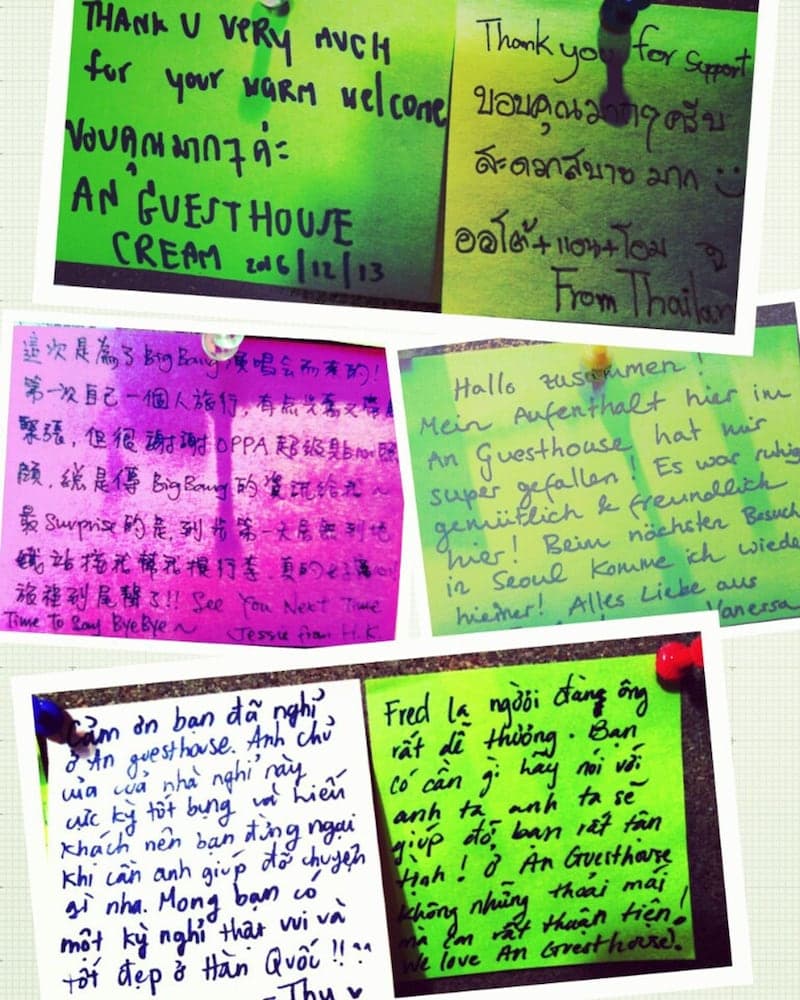 THANK U VERY MUCH
for your WARM Welcome
ขอบคุณมากๆค่ะ
AN GUESTHOUSE
CREAM 2016/12/13
Thank you for Support
ขอบคุณมากๆครับ
สะดวกสบายมาก :)
ออโต้+แอน+โอม
From Thailan
這次是為了BigBang演唱会而來的!
第一次自己一個人旅行,有点兴奮又帶
緊張,但很謝謝OPPA超級貼心的照
顧,總是傳BigBang的資訊給我~
最Surprise的是,到步第一天居然到地
鐵站接我幫我提行李,真的
旅程到尾聲了!! See You Next Time
Time To Say ByeBye~ Jessie from H.K.
Hallo zusammen!
Mein Aufenthalt hier im
An Guesthouse hat mir
super gefallen! Es war ruhig
gemütlich & freundlich
hier! Beim nächsten Besuch
in Seoul komme ich wiede
hierher! Alles Liebe aus
Vanessa
Cảm ơn bạn đã nghỉ
ở An guesthouse. Anh chủ
của nhà nghỉ này
cực kỳ tốt bụng và hiếu
khách nên bạn đừng ngại
khi cần anh giúp đỡ chuyện
gì nha. Mong bạn có
một kỳ nghỉ thật vui và
tốt đẹp ở Hàn Quốc!!^^
- Thu ♥
Fred là người đàng ông
rất dễ thương. Bạn
có cần gì hãy nói với
anh ta anh ta sẽ
giúp đỡ bạn rất tân
tình! Ở An Guesthouse
không những thoải mái
mà còn rất thuận tiện!
We love An Guesthouse).